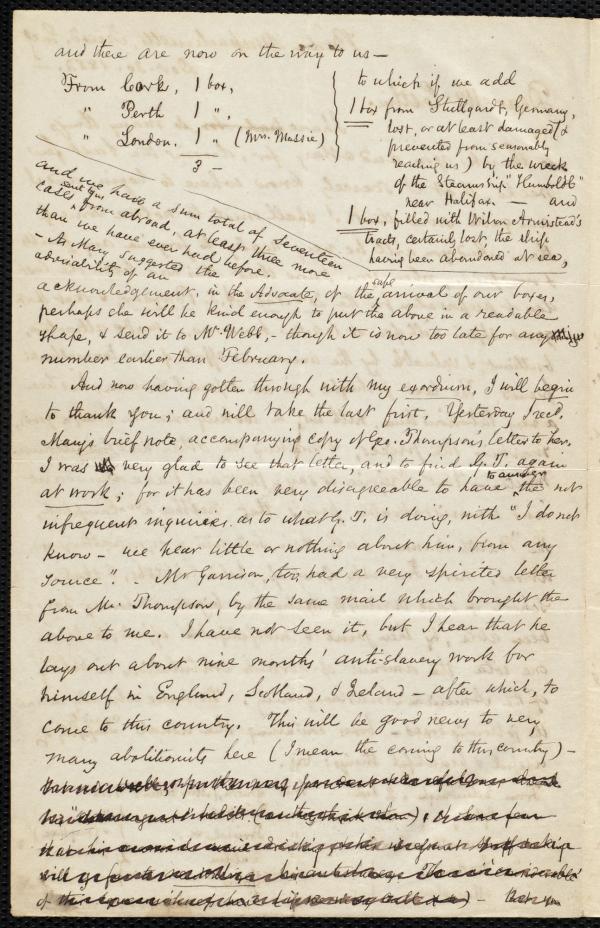 and there are now on the way to us—
From Cork, 1 box,
" Perth 1 ",
" London. 1 " (Mrs. Massie)
3 —
to which if we add
1 box from Stuttgardt, Germany,
lost, or at least damaged (&
prevented from seasonably
reaching us) by the wreck
of the Steamship "Humboldt"
near Halifax — and
1 box, filled with Wilson Armistead's
tracts, certainly lost, the ship
having been abandoned at sea,
and we have a sum total of seventeen
cases, sent us from abroad, at least three more
than we have ever had before.
- As Mary suggested the
advisability of an
acknowledgement, in the Advocate, of the safe arrival of our boxes,
perhaps she will be kind enough to put the above in a readable
shape, & send it to Mr. Webb, - though it is now too late for any
number earlier than February.
And now having gotten through with my exordium, I will begin
to thank you; and will take the last first. Yesterday I recd.
Mary's brief note, accompanying copy of Geo. Thompson's letter to her.
I was very glad to see that letter, and to find G. T. again
at work; for it has been very disagreeable to have to answer the not
infrequent inquiries as to what G. T. is doing, with "I do not
know — we hear little or nothing about him, from any
source". - Mr Garrison, too, had a very spirited letter
from Mr. Thompson, by the same mail which brought the
above to me. I have not seen it, but I hear that he
lays out about nine months' anti-slavery work for
himself in England, Scotland, & Ireland — after which, to
come to this country. This will be good news to very
many abolitionists here (I mean the coming to this country) —